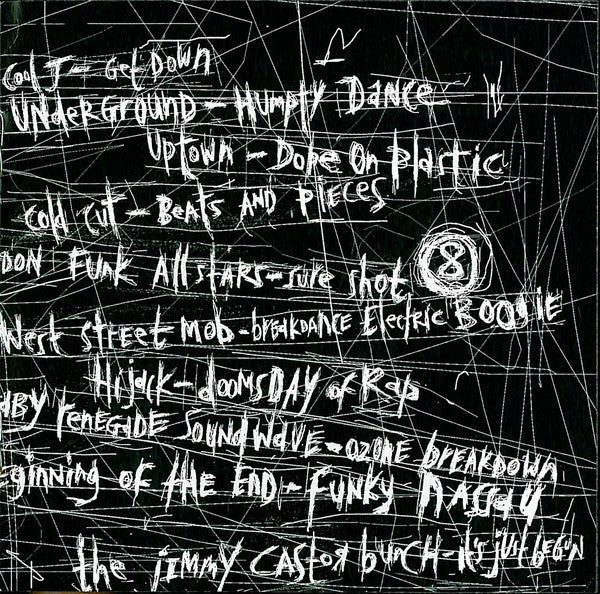 Cool J - Get Down
UNDERGROUND - HUMPTY DANCE
UPTOWN - DOPE ON PLASTIC
COLD CUT - BEATS AND PIECES
DON FUNK ALLSTARS - SURE SHOT 8
WEST STREET MOB - BREAKDANCE ELECTRIC BOOGIE
HIJACK - DOOMSDAY of RAP
BY RENEGIDE SOUNDWAVE - OZONE BREAKDOWN
ginning OF THE END - FUNKY NASSAU
the JIMMY CASTOR bunCH - It's just BEGUN